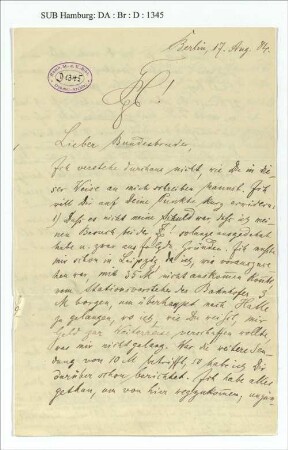 SUB Hamburg: DA : Br : D : 1345
Berlin, 17. Aug. 84.
D 1345
Lieber Bundesbruder,
Ich verstehe durchaus nicht, wie Du in die-
ser Weise an mich schreiben kannst. Ich
will Dir auf Deine Punkte kurz erwidern.
1) Daß es nicht meine Schuld war, daß ich mei-
nen Besuch bei so lange ausgedehnt
habe u. zwar aus Gründen. Ich mußte
mir schon in Leipzig, da ich, wie vorauszuse-
hen war, mit 35 M nicht auskommen konnte
vom Stationsvorsteher des Bahnhofes 5
M borgen, um überhaupt nach Halle
zu gelangen, wo ich, wie Du weißt, mir
Geld zur Weiterreise verschaffen wollte,
was mir nicht gelang. Was die weitere Sen-
dung von 10 M betrifft, so habe ich Dir
darüber schon berichtet. Ich habe alles
gethan, um von hier wegzukommen,